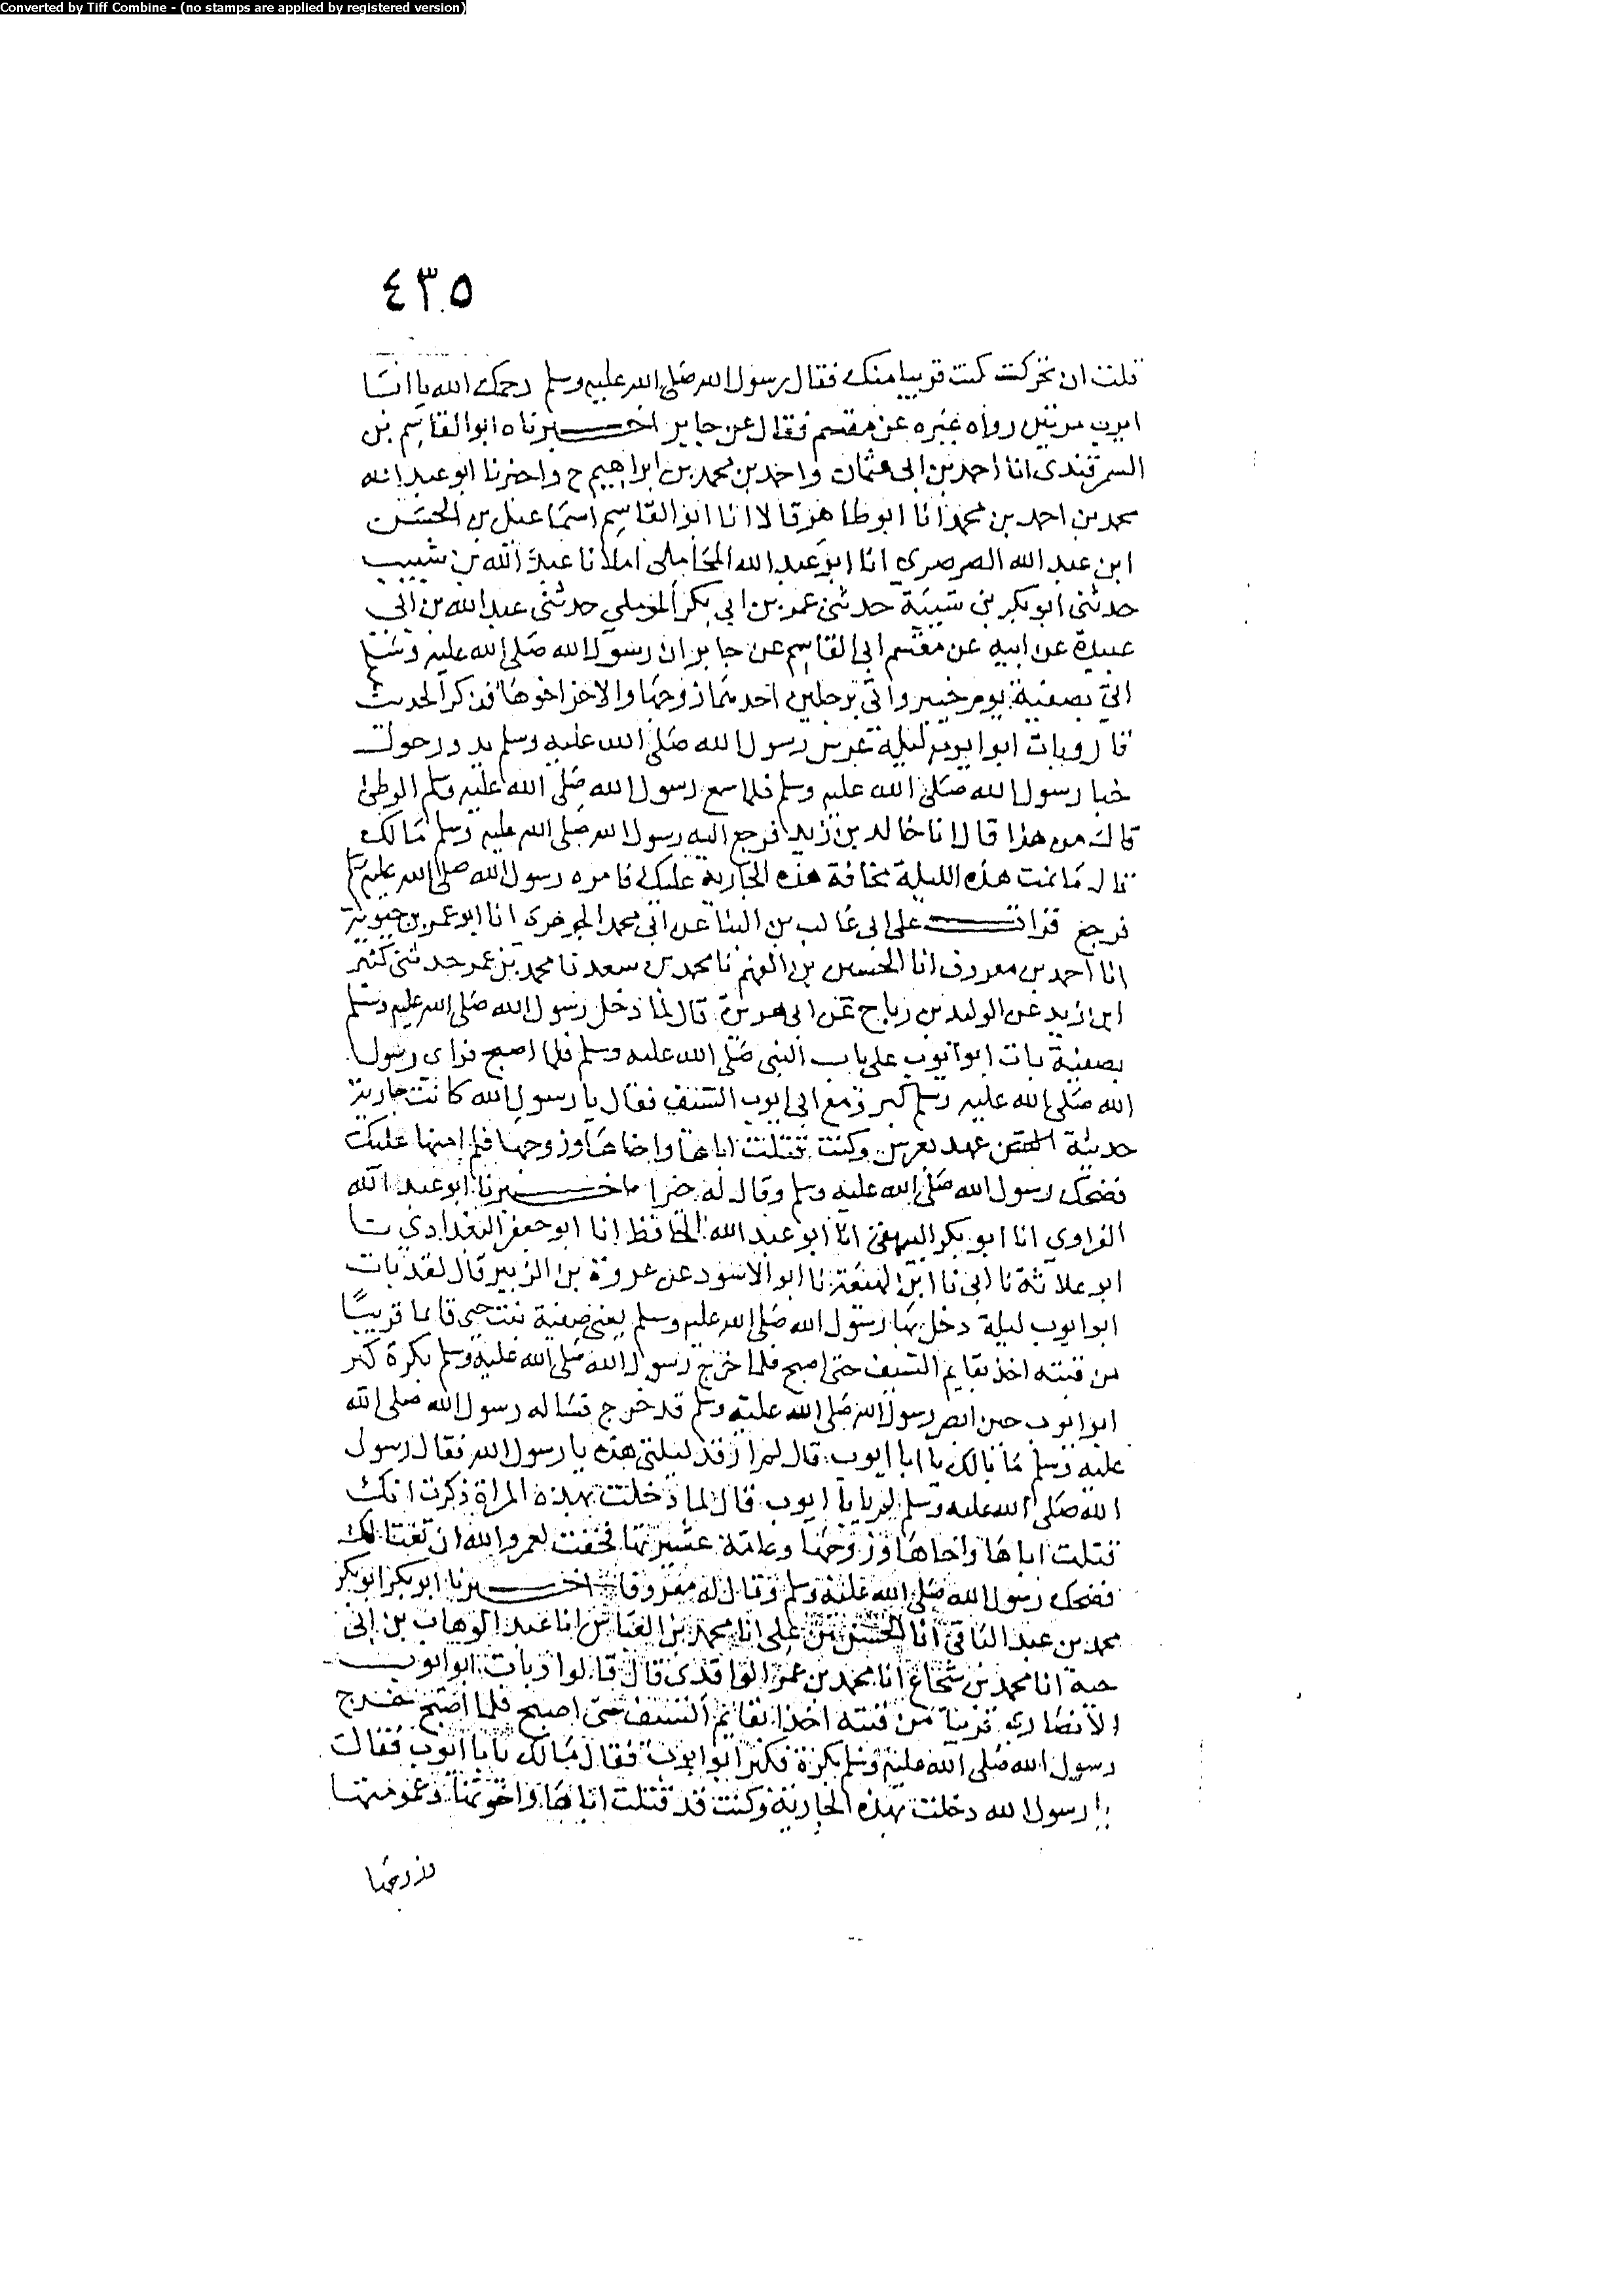 Converted by Tiff Combine - (no stamps are applied by registered version)
٤٣٥
قلت ان تحركت كنت قريبا منك فقال رسول الله صلى الله عليه وسلم رحمك الله يا ابا
ايوب مرتين رواه غيره عن مقسم فقال عن جابر اخبرناه ابو القاسم بن
السمرقندى انا احمد بن ابى عثمان واحمد بن محمد بن ابراهيم ح واخبرنا ابو عبد الله
محمد بن احمد بن محمد انا ابو طاهر قالا انا ابو القاسم اسماعيل بن الحسن
ابن عبد الله الصرصرى انا ابو عبد الله المحاملى املا نا عبد الله بن شبيب
حدثنى ابو بكر بن شيبة حدثنى عمر بن ابى بكر الموملى حدثنى عبد الله بن ابى
عبيدة عن ابيه عن مقسم ابى القاسم عن جابر ان رسول الله صلى الله عليه وسلم
اتى بصفية يوم خيبر واتى برجلين احدهما زوجها والاخر اخوها فذكر الحديث
قال وبات ابو ايوب ليلة عرس رسول الله صلى الله عليه وسلم يدور حول
خبا رسول الله صلى الله عليه وسلم فلما سمع رسول الله صلى الله عليه وسلم الوطئ
قال من هذا قال انا خالد بن زيد فرجع اليه رسول الله صلى الله عليه وسلم مالك
قال ما نمت هذه الليلة مخافة هذه الجارية عليك فامره رسول الله صلى الله عليه وسلم
فرجع قرات على ابى غالب بن البنا عن ابى محمد الجوهرى انا ابو عمر بن حيوية
انا احمد بن معروف انا الحسين بن الفهم نا محمد بن سعد نا محمد بن عمر حدثنى كثير
ابن زيد عن الوليد بن رباح عن ابى هريرة قال لما دخل رسول الله صلى الله عليه وسلم
بصفية بات ابو ايوب على باب النبى صلى الله عليه وسلم فلما اصبح فراى رسول
الله صلى الله عليه وسلم كبر ومع ابى ايوب السيف فقال يا رسول الله كانت جارية
حديثة عهد بعرس وكنت قتلت اباها واخاها وزوجها فلم امنها عليك
فضحك رسول الله صلى الله عليه وسلم وقال له خيرا اخبرنا ابو عبد الله
الفراوى انا ابو بكر البيهقى انا ابو عبد الله الحافظ انا ابو جعفر البغدادى نا
ابو علاثة نا ابى نا ابن لهيعة نا ابو الاسود عن عروة بن الزبير قال لقد بات
ابو ايوب ليلة دخل بها رسول الله صلى الله عليه وسلم يعنى صفية بنت حيى قائما قريبًا
من قبته اخذ بقايم السيف حتى اصبح فلما خرج رسول الله صلى الله عليه وسلم بكرة كبر
ابو ايوب حين ابصر رسول الله صلى الله عليه وسلم قد خرج فساله رسول الله صلى الله
عليه وسلم ما بالك يا ابا ايوب قال لم ارقد ليلتى هذه يا رسول الله فقال رسول
الله صلى الله عليه وسلم لم يابا ايوب قال لما دخلت بهذه المراة ذكرت انك
قتلت اباها واخاها وزوجها وعامة عشيرتها فخفت لعمرو الله ان تغتالك
فضحك رسول الله صلى الله عليه وسلم وقال له معروفا اخبرنا ابو بكر ابو بكر
محمد بن عبد الباقى انا الحسن بن على انا محمد بن العباس انا عبد الوهاب بن ابى
حية انا محمد بن شجاع انا محمد بن عمر الواقدى قال قالوا وبات ابو ايوب
الانصارى قريبا من قبته اخذا بقايم السيف حتى اصبح فلما اصبح خرج
رسول الله صلى الله عليه وسلم بكرة فكبر ابو ايوب فقال مالك يابا ايوب فقال
يا رسول الله دخلت بهذه الجارية وكنت قد قتلت اباها واخوتها وعمومتها
وزوجها